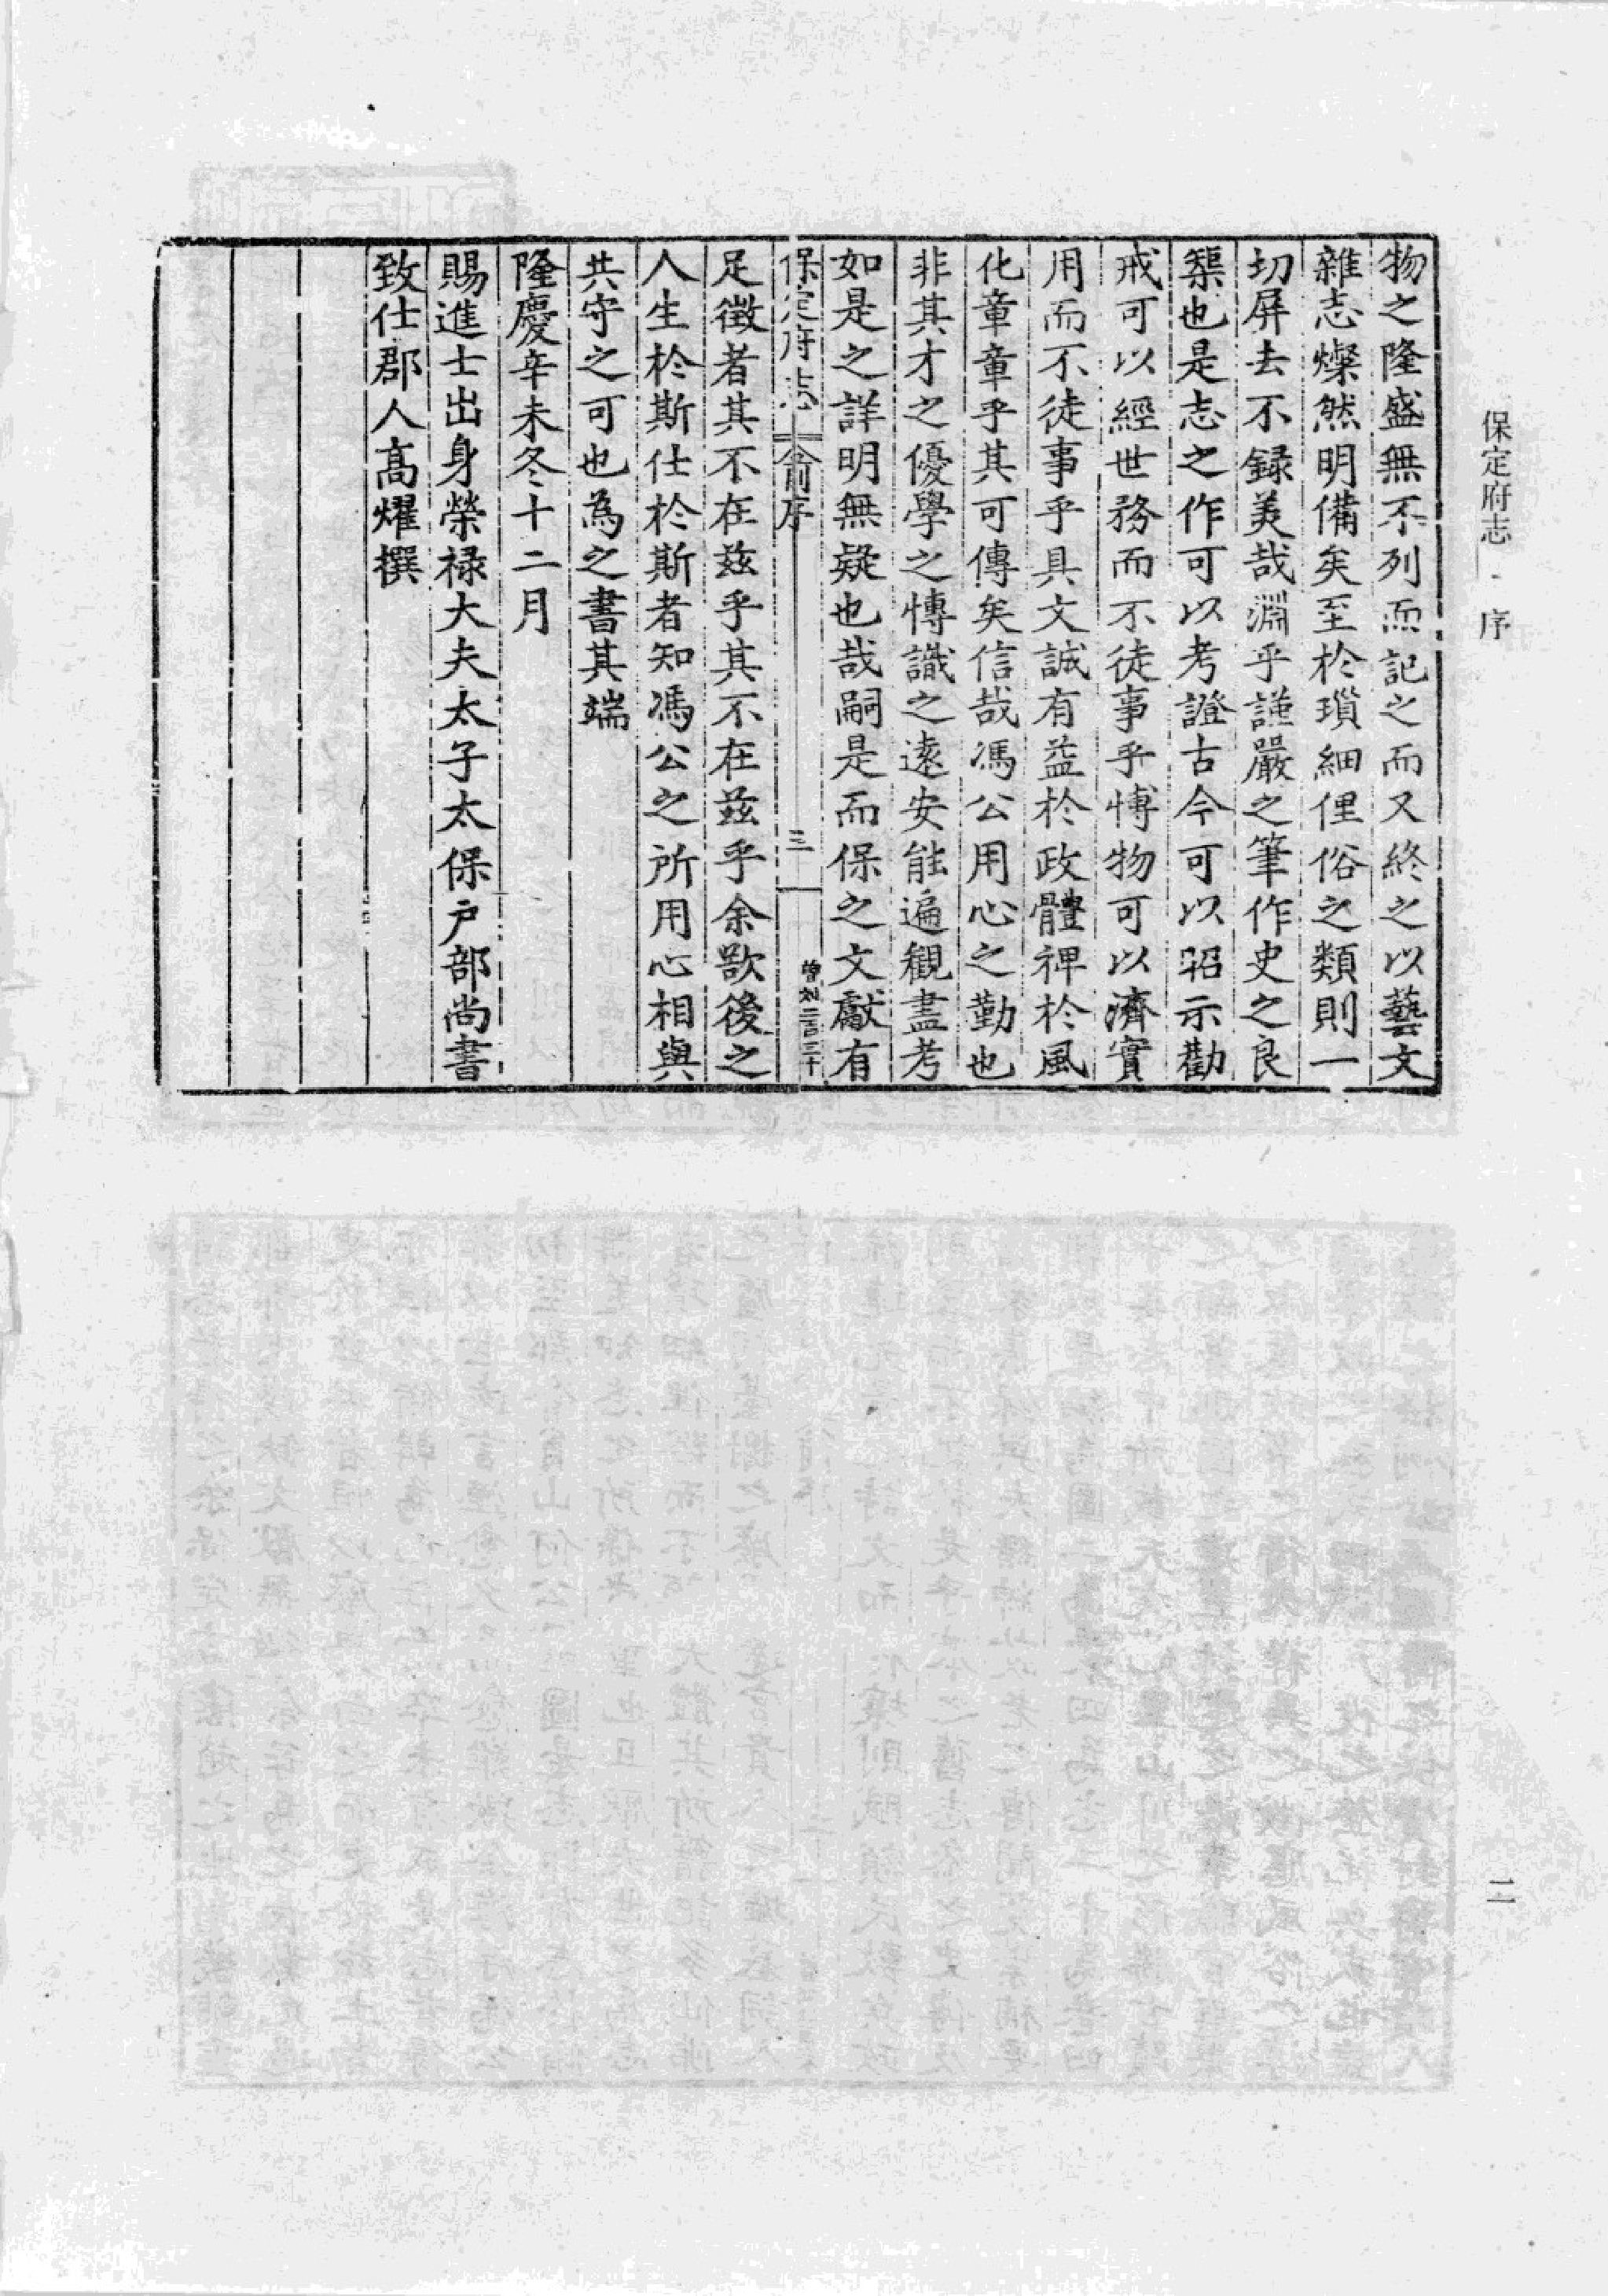 保定府志 序
物之隆盛無不列而記之而又終之以藝文
雜志燦然明備矣至於瑣細俚俗之類則一
切屏去不録美哉淵乎謹嚴之筆作史之良
榘也是志之作可以考證古今可以昭示勸
戒可以經世務而不徒事乎愽物可以濟實
用而不徒事乎具文誠有益於政體裨於風
化章章乎其可傳矣信哉馮公用心之勤也
非其才之優學之愽識之遠安能遍觀盡考
如是之詳明無疑也哉嗣是而保之文獻有
保定府志 序 三
足徵者其不在兹乎其不在兹乎余歌後之
人生於斯仕於斯者知馮公之所用心相與
共守之可也為之書其端
隆慶辛未冬十二月
賜進士出身榮祿大夫太子太保户部尚書
致仕郡人高燿撰
二